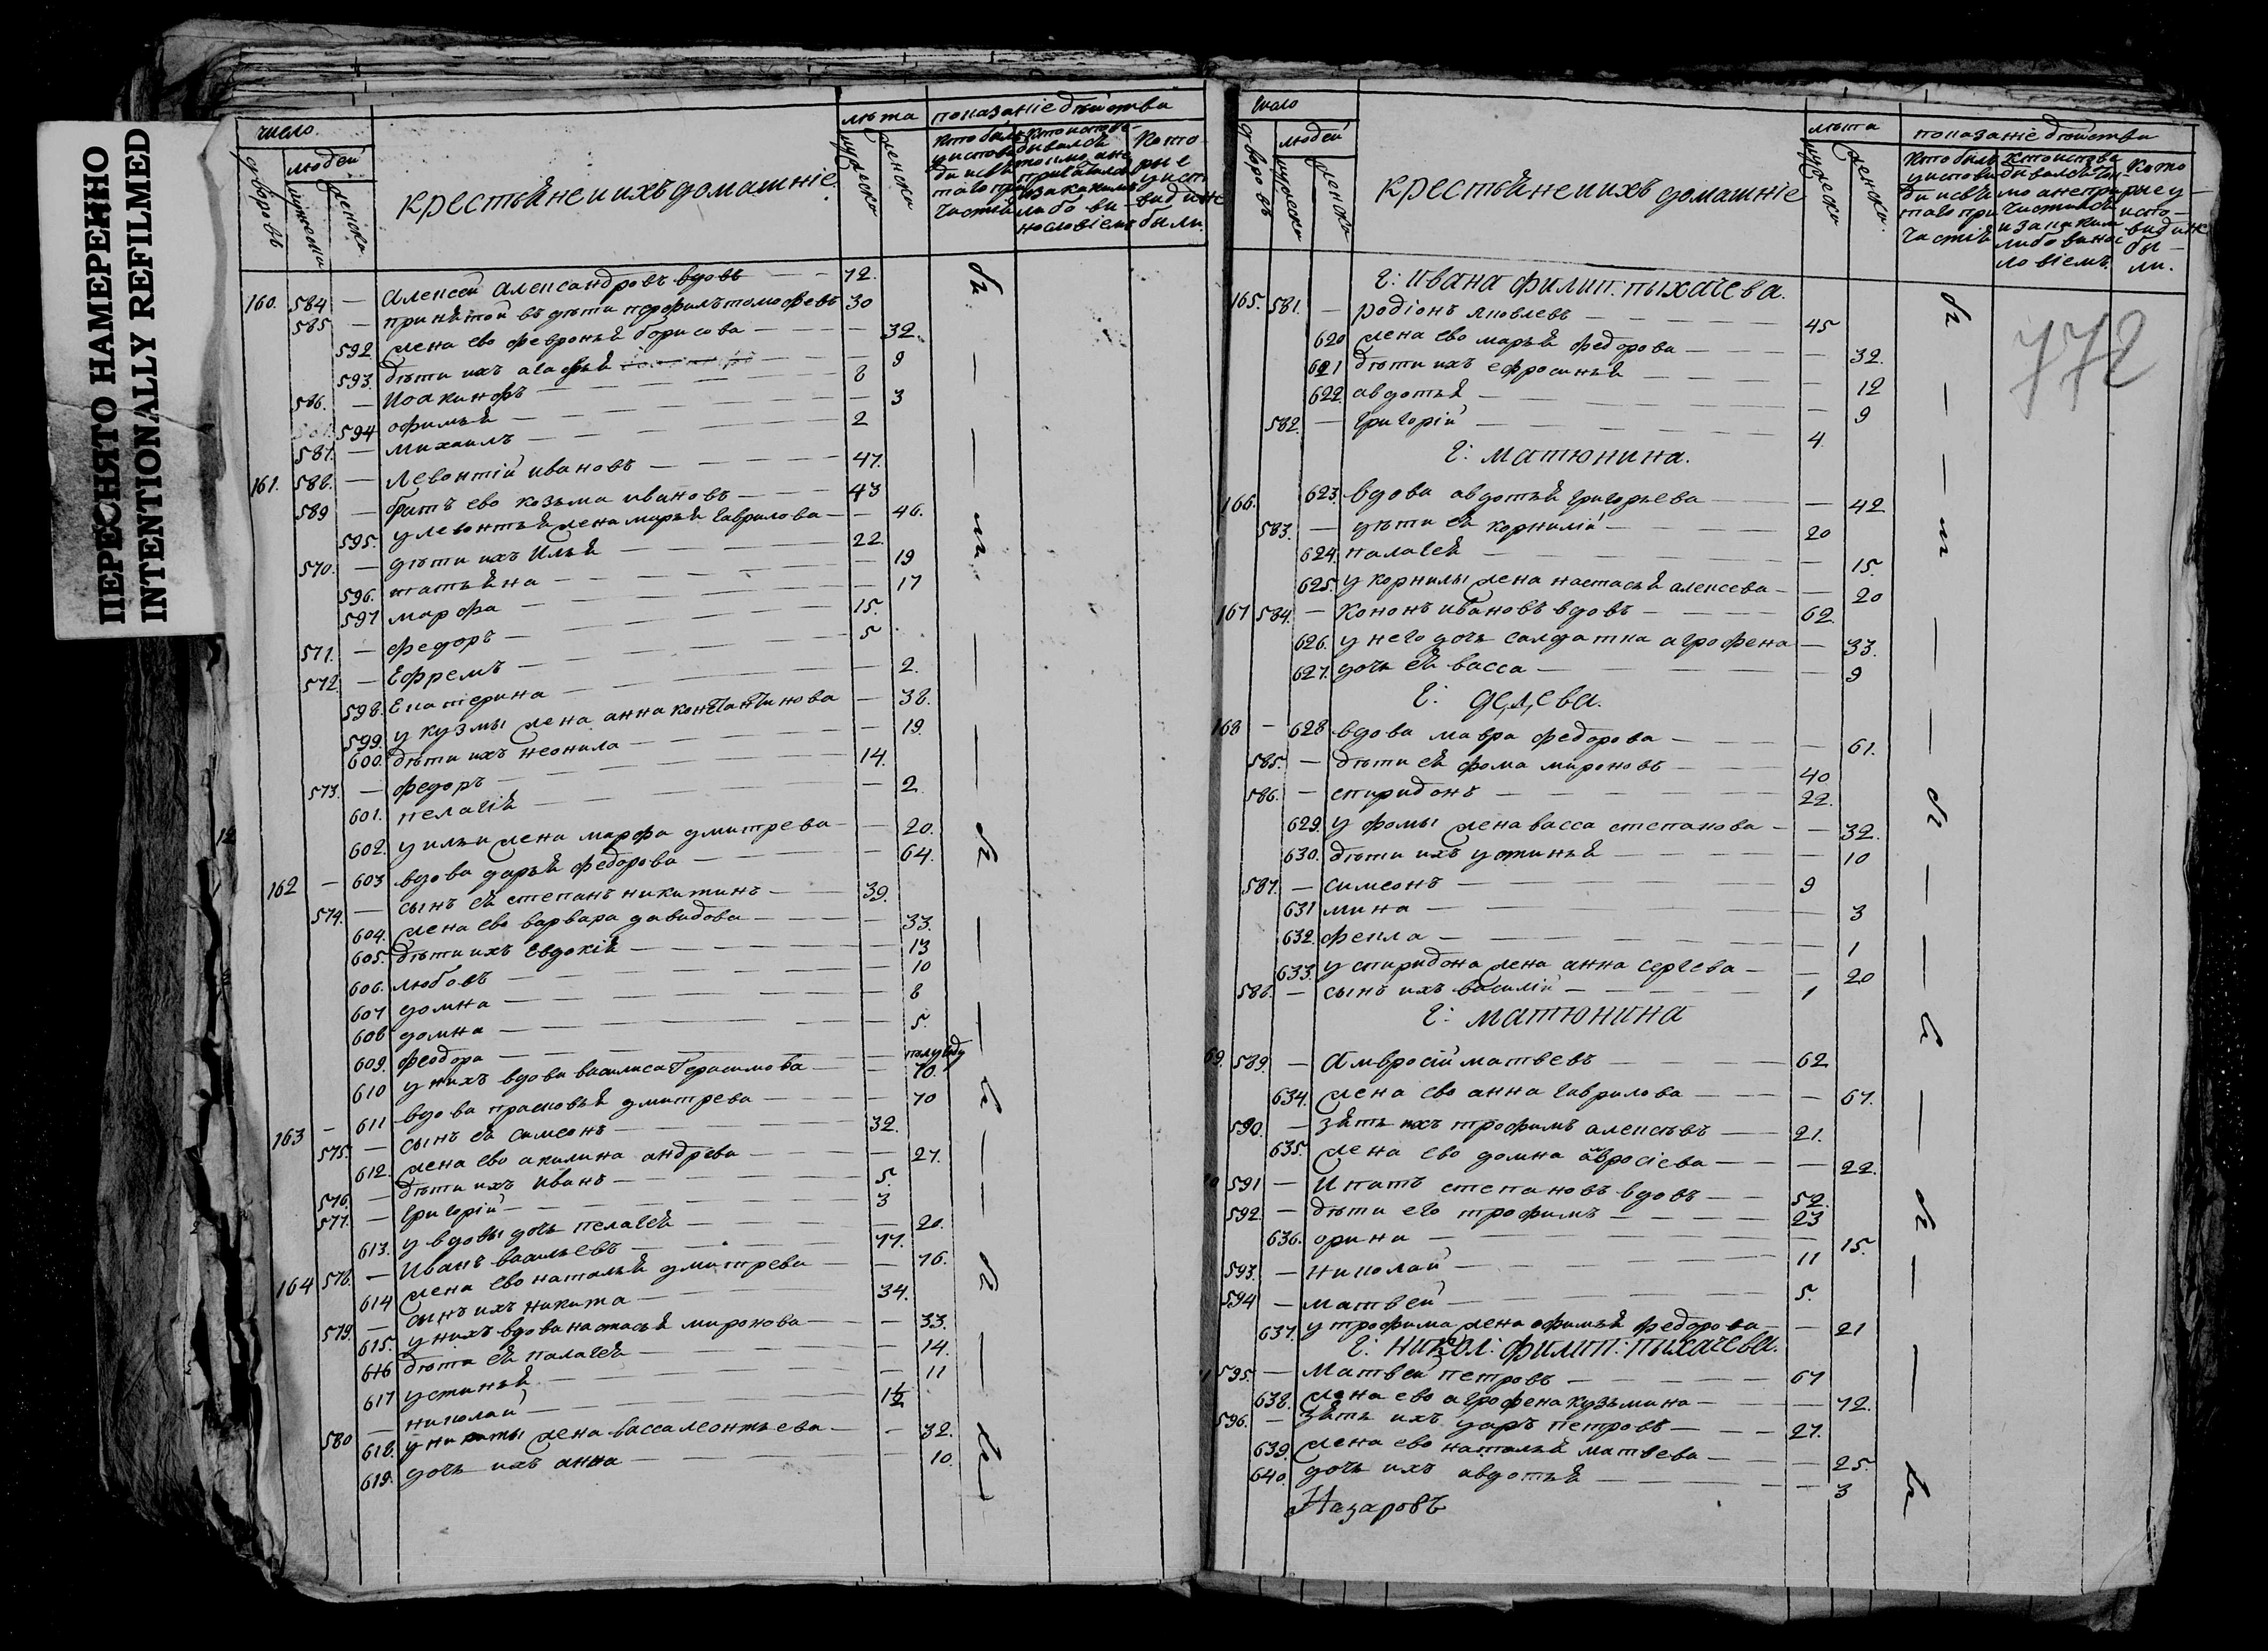 ПЕРЕСНЯТО НАМЕРЕННО
INTENTIONALLY REFILMED
число
дворовъ
людей
мужеска
женска
крестьяне и ихъ домашніе
лѣта
мужеска
женска
показаніе дѣйства
160. 584 — Алексей Александровъ вдовъ — — 72.
585 — принятой въ дѣти порфилъ тимофевъ 30
592 жена ево февронья борисова — — 32.
593. дѣти ихъ агафья — — 9
586. — Иоакинфъ — 8
594 офимья — — 3
587. — михаилъ — 2
161. 588. — Левонтій ивановъ — 47.
589 — братъ ево козьма ивановъ — 43
595. у левонтья жена марья гаврилова — — 46.
570. — дѣти ихъ Илья — 22.
596. татьяна — — 19
597 марфа — — 17
571. — федоръ — 15.
572. — Ефремъ — 5
598. Екатерина — — 2.
599. у кузмы жена анна константинова — 38.
600. дѣти ихъ неонила — — 19.
573. — федоръ — 14.
601. пелагія — — 2
602. у ильи жена марфа дмитрева — — 20.
162 — 603 вдова дарья федорова — — 64.
574. — сынъ ея степанъ никитинъ — 39.
604. жена ево варвара давидова — — 33.
605. дѣти ихъ Евдокія — — 13
606. любовъ — — 10
607 домна — — 8
608 домна — — 5.
609. феодора — — полугоду
610 у нихъ вдова василиса Герасимова — — 70.
163 — 611 вдова прасковья дмитрева — — 70
575. — сынъ ея симеонъ — 32.
612. жена ево акилина андрева — — 27.
576. — дѣти ихъ иванъ — 5.
577. — григорій — 3
613. у вдовы дочь пелагея — — 20.
164 578. — Иванъ васильевъ — 77.
614 жена ево наталья дмитрева — — 76.
579. — сынъ ихъ никита — 34.
615. у нихъ вдова настасья миронова — — 33.
616 дѣти ея палагея — — 14.
617 устинья — — 11
580 — николай — 1½
618. у никиты жена васса леонтьева — — 32.
619. дочь ихъ анна — — 10.
число
дворовъ
людей
мужеска
женска
крестьяне и ихъ домашніе
лѣта
мужеска
женска
показаніе дѣйства
772
г: ивана филип: пыхачева.
165. 581. — родіонъ яковлевъ — 45
620 жена ево марья федорова — — 32.
621 дѣти ихъ ефросинья — — 12
622. авдотья — — 9
582. — григорій — 4.
г: матюнина.
166. 623. вдова авдотья григорьева — — 42
583. — дѣти ея корнилій — 20
624. палагея — — 15.
625. у корнилы жена настасья алексева — — 20
167 584. — Кононъ ивановъ вдовъ — 62.
626. у него дочь салдатка агрофена — 33.
627. дочь ея васса — — 9
168 — 628 вдова мавра федорова — — 61.
585. — дѣти ея фома мироновъ — 40
586. — спиридонъ — 22.
629. у фомы жена васса степанова — — 32.
630. дѣти ихъ устинья — — 10
587. — симеонъ — 9
631 мина — — 3
632. фекла — — 1
633. у спиридона жена анна сергева — — 20
588. — сынъ ихъ василій — 1
г: матюнина
69. 589. — Амвросій матвевъ — 62
634. жена ево анна гаврилова — — 67.
590. — зять ихъ трофимъ алексѣвъ — 21.
635. жена ево домна амвросіева — — 22.
591 — Ипатъ степановъ вдовъ — 52.
592. — дѣти его трофимъ — 23
636. орина — — 15.
593. — николай — 11
594 — матвей — 5.
637. у трофима жена офимья федорова — — 21
г: никол: филип: пыхачева.
595. — Матвей петровъ — 67
638. жена ево агрофена кузьмина — — 72.
596. — зять ихъ уаръ петровъ — 27.
639. жена ево наталья матвева — — 25.
640. дочь ихъ авдотья — — 3
Назаровъ